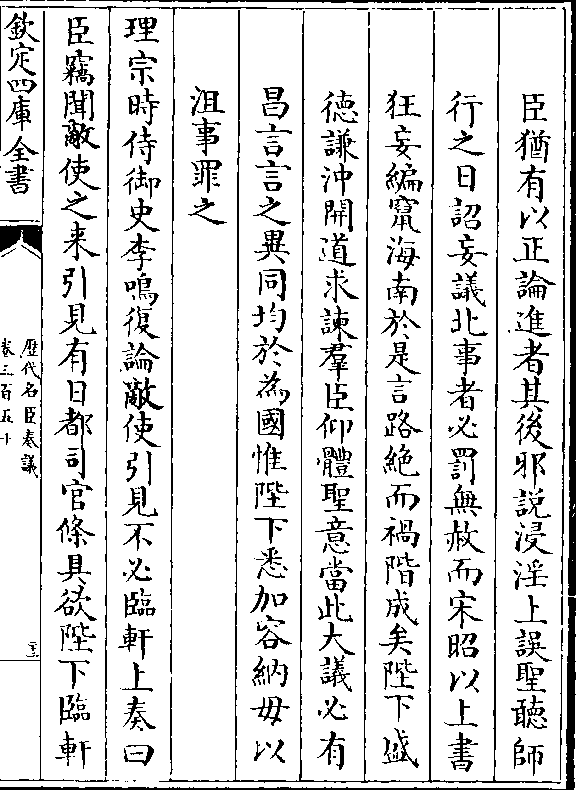 臣猶有以正論進者其後邪説浸淫上誤聖聽師
行之日詔妄議北事者必罰無赦而宋昭以上書
狂妄編竄海南於是言路絶而禍階成矣陛下盛
德謙沖開道求諫羣臣仰體聖意當此大議必有
昌言言之異同均於為國惟陛下悉加容納毋以
沮事罪之
理宗時侍御史李鳴復論敵使引見不必臨軒上奏曰
臣竊聞敵使之来引見有日都司官條具欲陛下臨軒
欽定四庫全書
歴代名臣奏議
卷三百五十
二十三